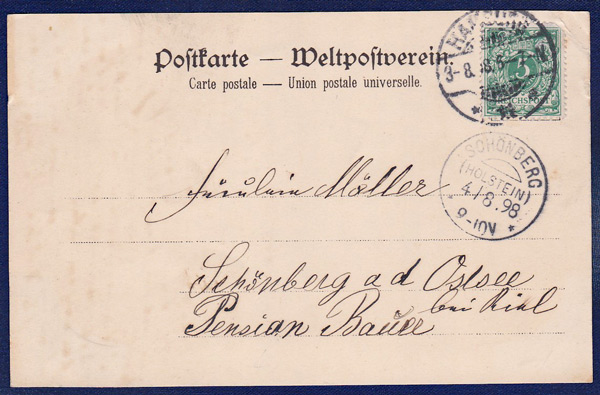 Postkarte — Weltpostverein.
Carte postale — Union postale universelle.
HAMBURG
3-8.98.
3
REICHSPOST
SCHÖNBERG
(HOLSTEIN)
4/8.98
9-10V
Fräulein Möller
Schönberg a d Ostsee
bei Kiel
Pension